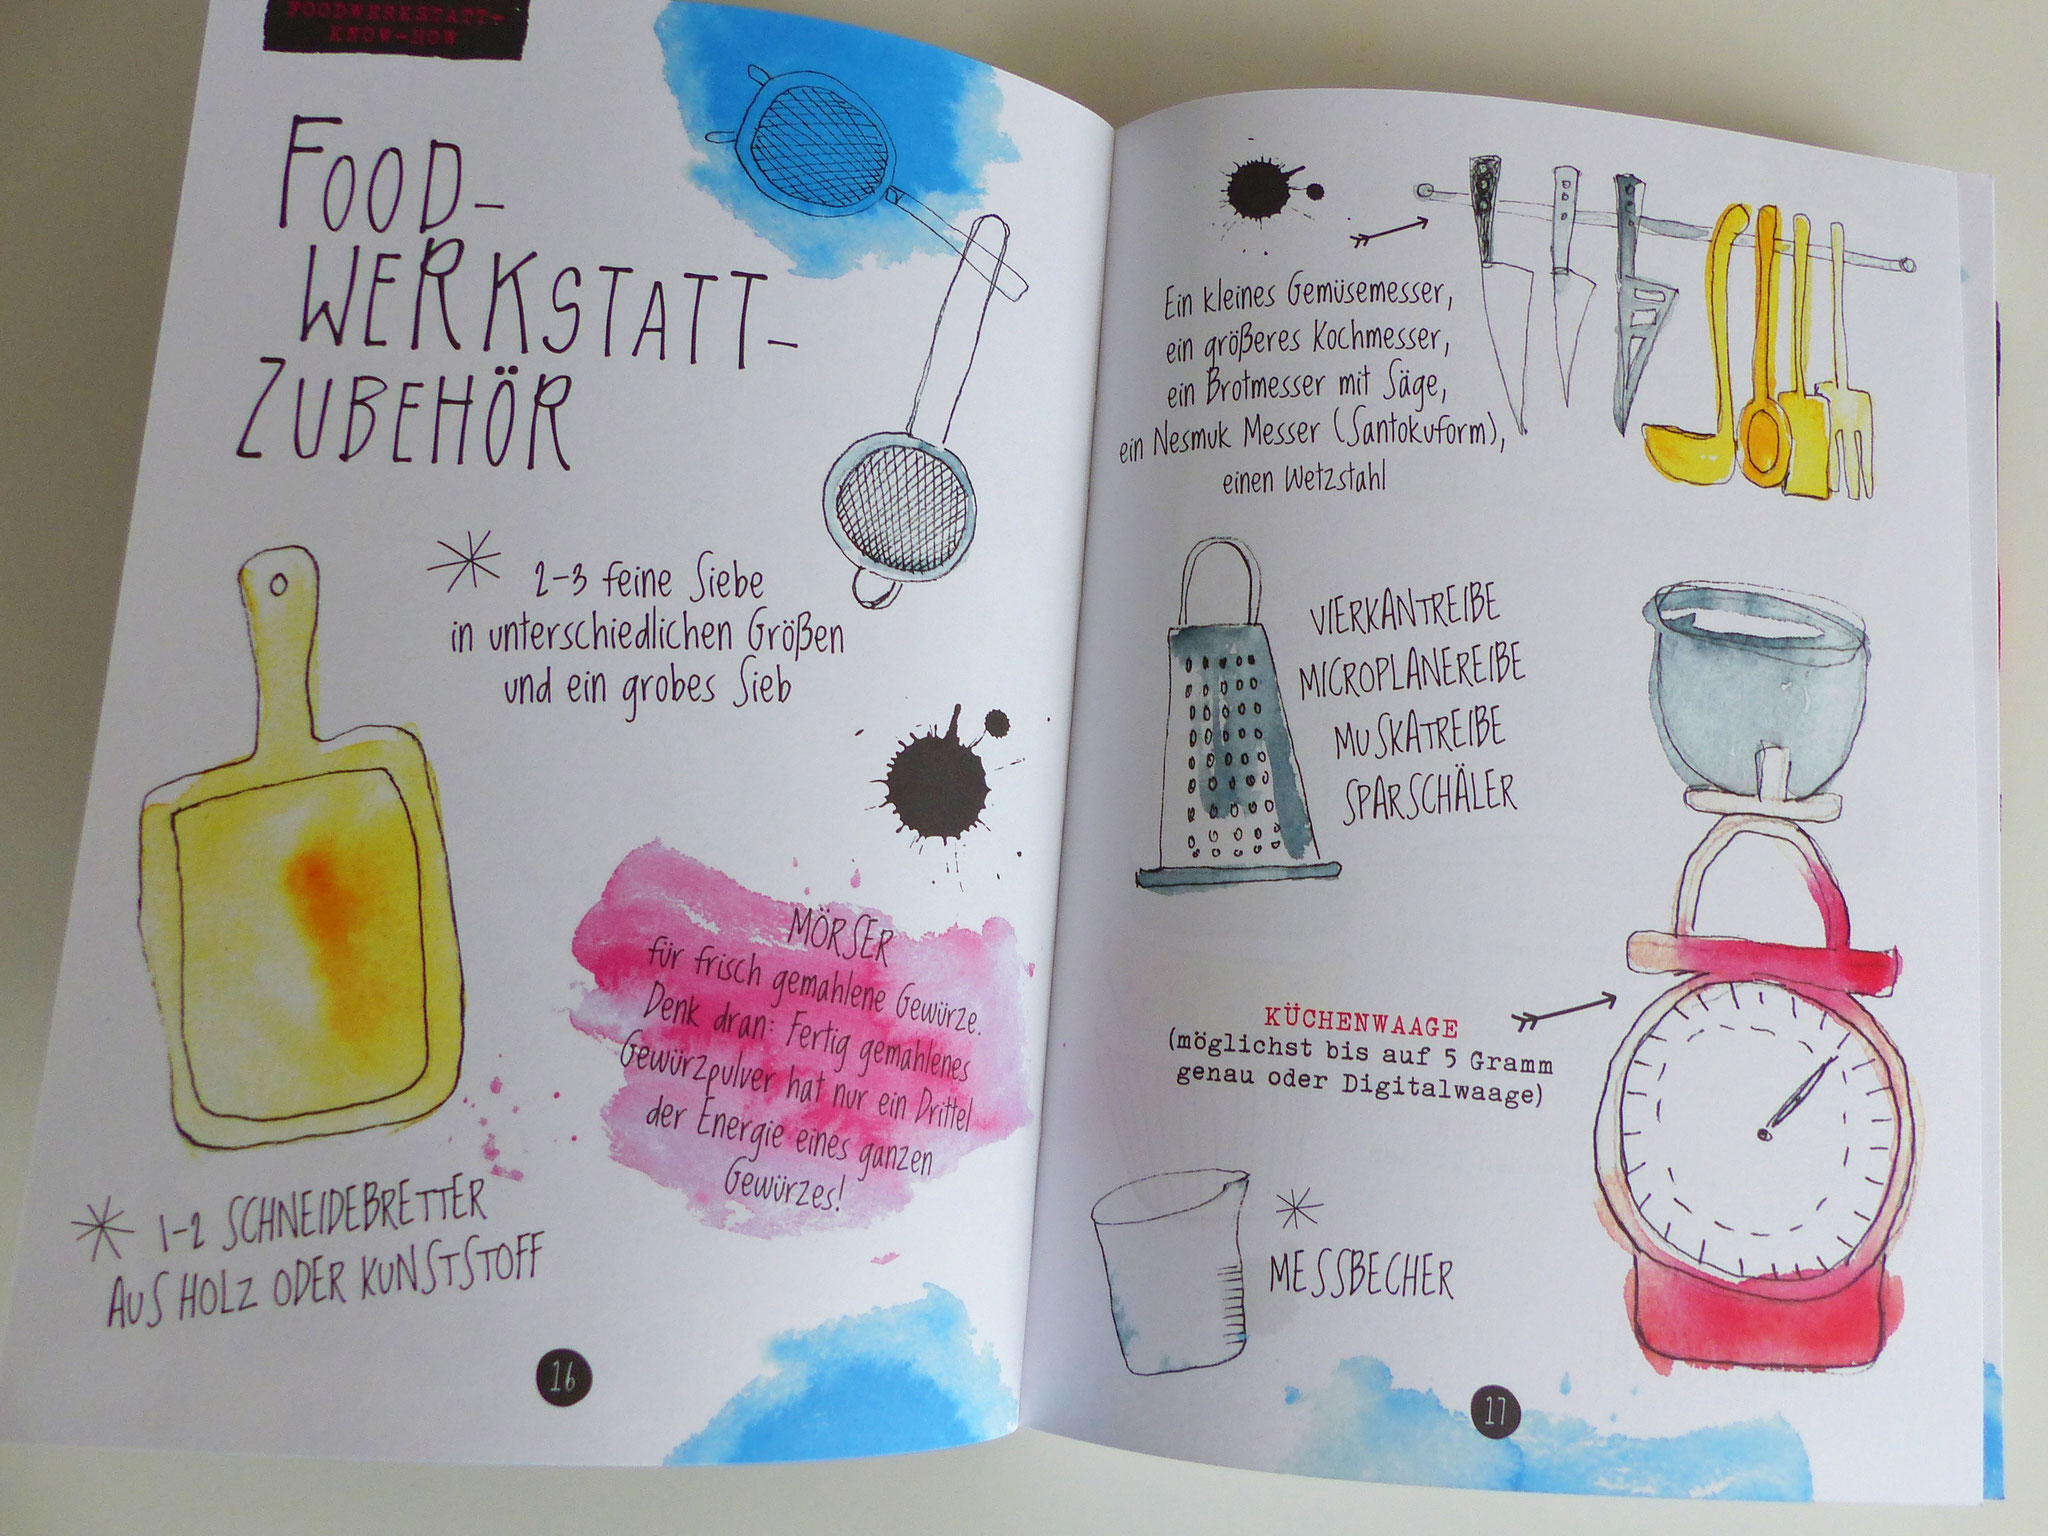 FOODWERKSTATT-
KNOW-HOW
FOOD-
WERKSTATT-
ZUBEHÖR
2-3 feine Siebe
in unterschiedlichen Größen
und ein grobes Sieb
MÖRSER
für frisch gemahlene Gewürze.
Denk dran: Fertig gemahlenes
Gewürzpulver hat nur ein Drittel
der Energie eines ganzen
Gewürzes!
1-2 SCHNEIDEBRETTER
AUS HOLZ ODER KUNSTSTOFF
16
Ein kleines Gemüsemesser,
ein größeres Kochmesser,
ein Brotmesser mit Säge,
ein Nesmuk Messer (Santokuform),
einen Wetzstahl
VIERKANTREIBE
MICROPLANEREIBE
MUSKATREIBE
SPARSCHÄLER
KÜCHENWAAGE
(möglichst bis auf 5 Gramm
genau oder Digitalwaage)
MESSBECHER
17